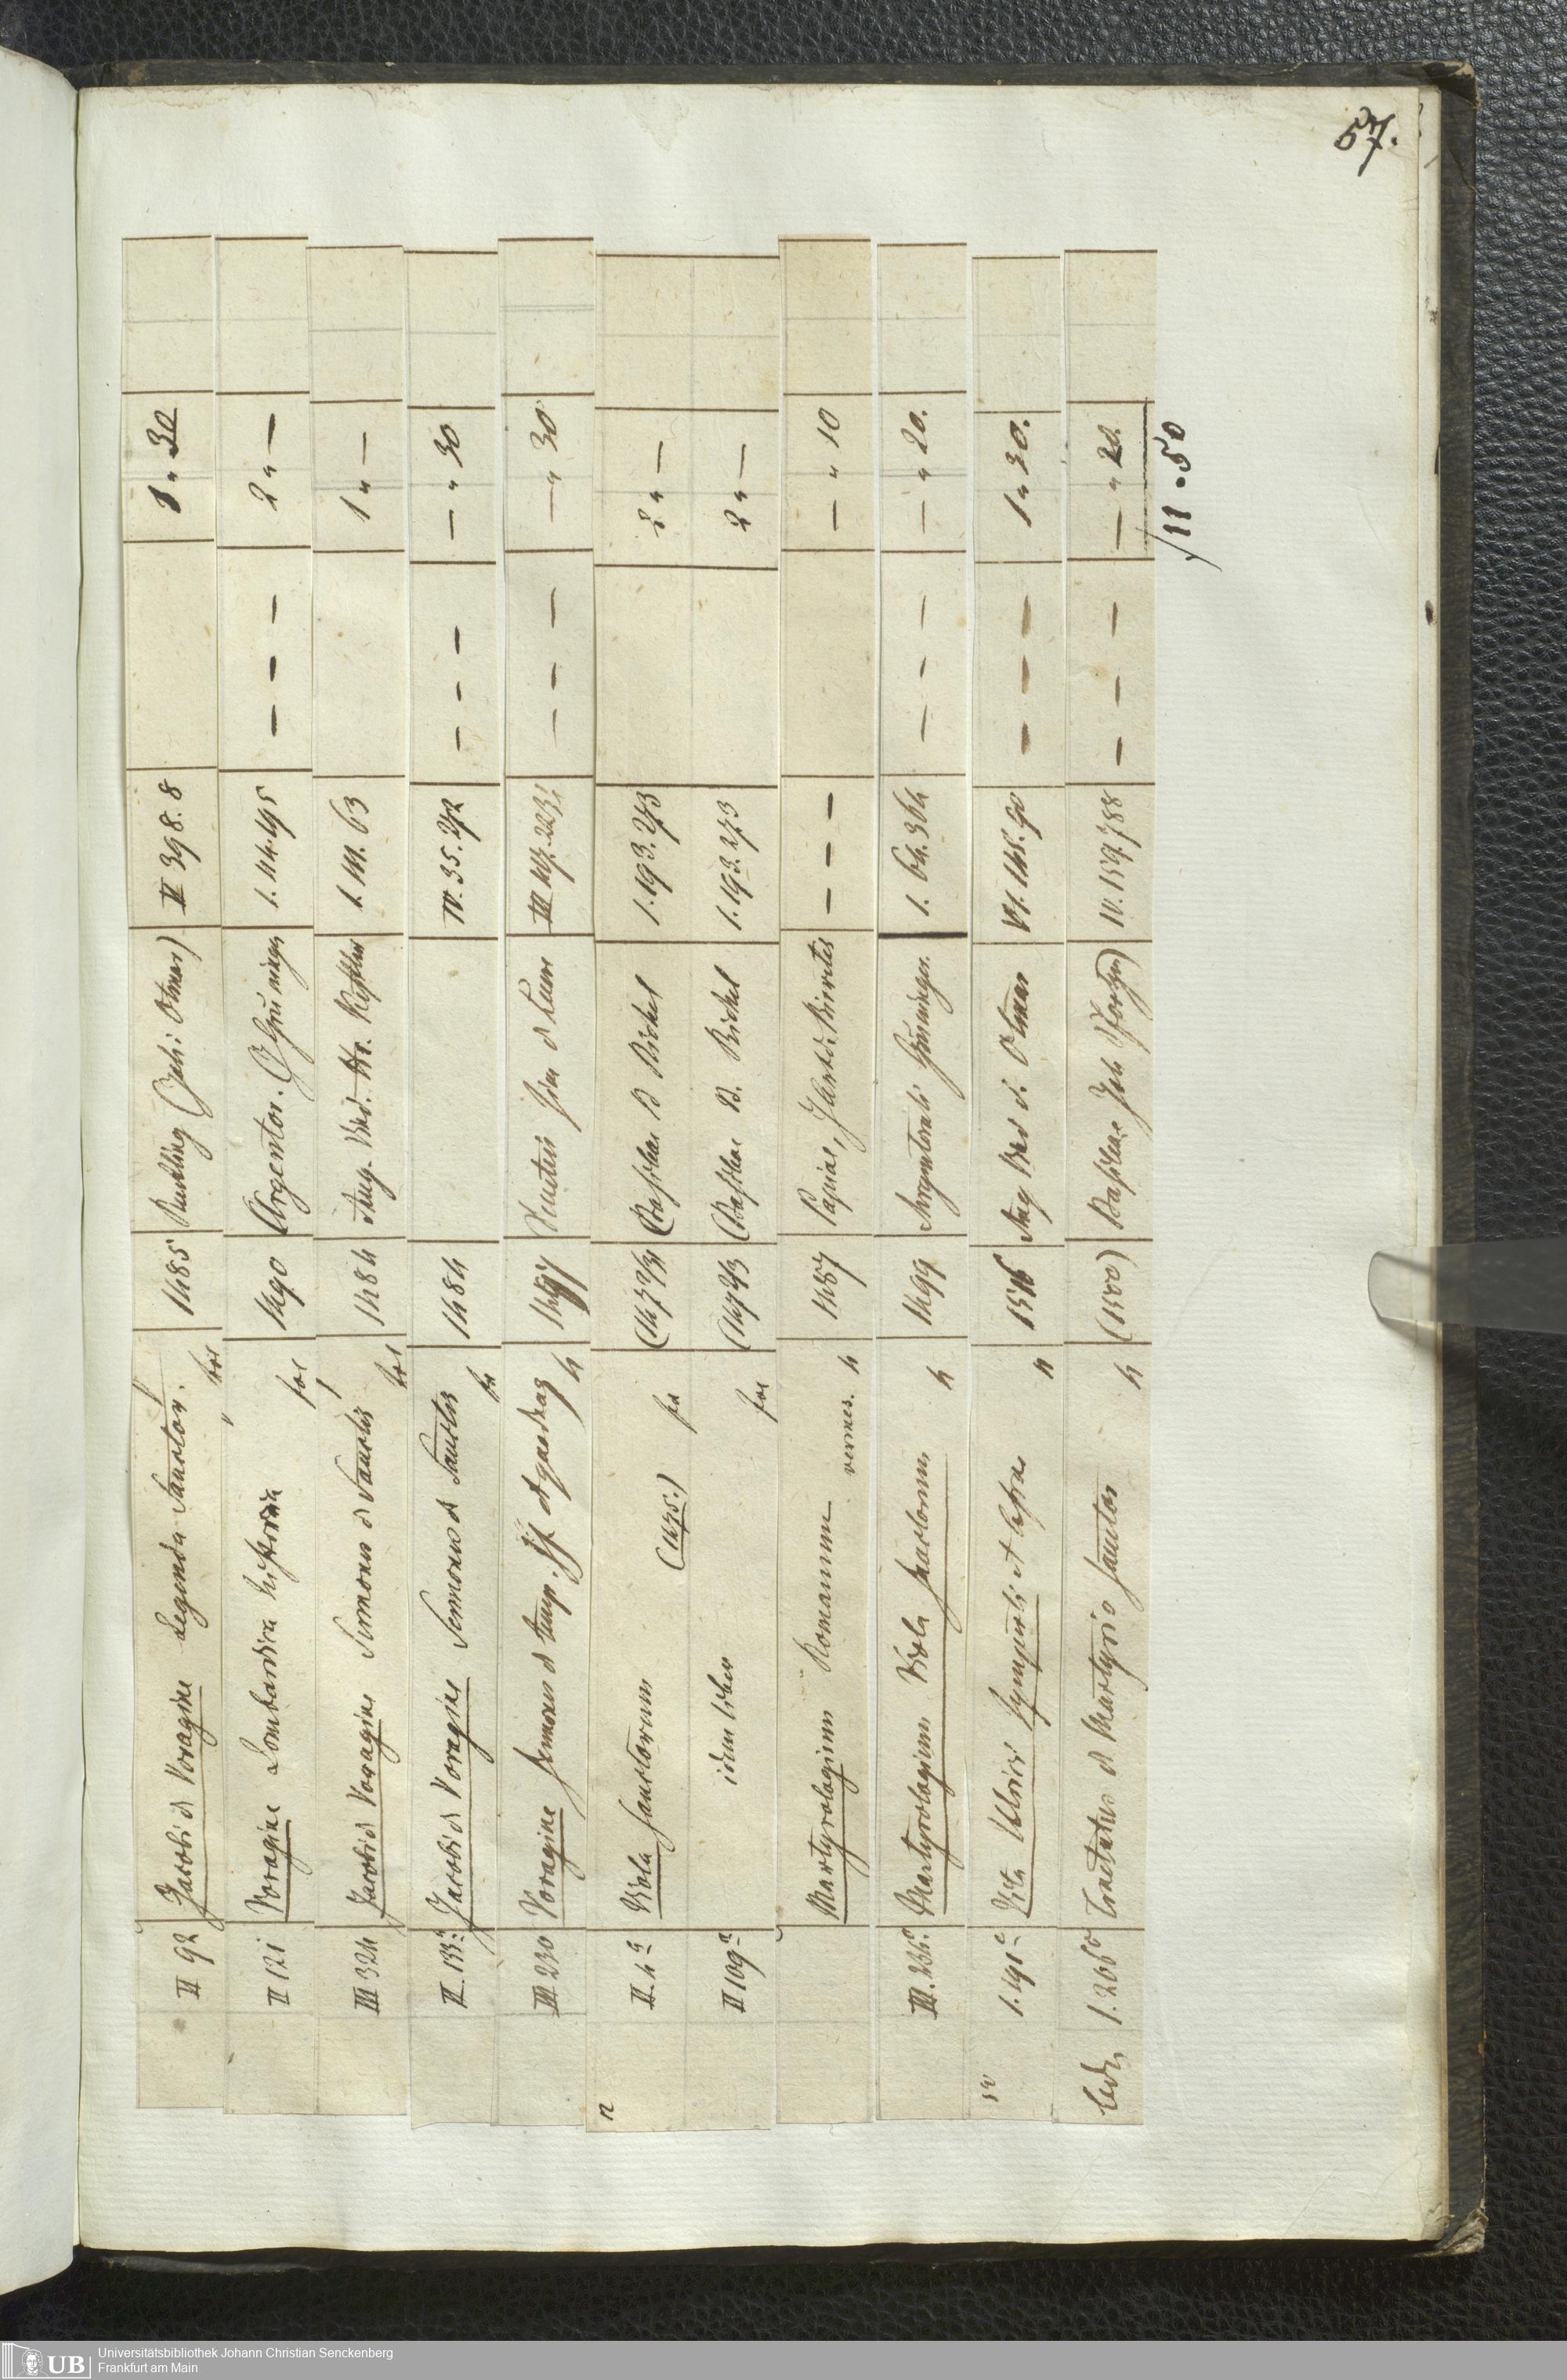 57.
II 92 Jacobi d Voragine Legenda Sanctor. fol 1485 Reutling (Joh: Otmar) II 398. 8 1 " 30
II 121 Voragine Lombardica historia fol 1490 Argentor. Grüninger 1. 44. 195 — — — 2 " —
III 324 Jacobi d Voragine Sermones d Sanctis fol 1484 Aug. Vind. Keßler 1. 111. 63 1 " —
II. 133 Jacobi d Voragine Sermones d Sanctis fol 1484 IV. 35. 272 — — — — " 30
III 230 Voragine sermones d temp. et quadrag 4 1497 Venetiis d Luere III — — — — " 30
II. 4 Viola Sanctorum (1475.) fol (1472/3) Basileae B Richel 1. 193. 273 2 " —
II 109 idem liber fol (1472/3 Basileae B. Richel 1. 193. 273 2 " —
Martyrologium Romanum 4 1487 Papiae, — — — — " 10
III. 236 Martyrologium Viola sanctorum 4 1499 Argentorati Grüninger. 1. 64. 364 — — — — " 20.
1. 191 Vita Udalrici Symperti et Afrae 4 1516 Aug Vind S. Otmar VI. 145. 90 — — — 1 " 30.
1. 266 Tractatus d Martyrio Sanctor 4 (1500) Basileae Joh IV. 159. 788 — — — — " 20.
11 . 50
Universitätsbibliothek Johann Christian Senckenberg
Frankfurt am Main
UB